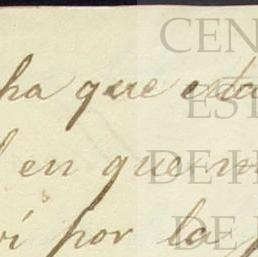 ha que esta
en que
por la
CEN
EST
DE H
DE